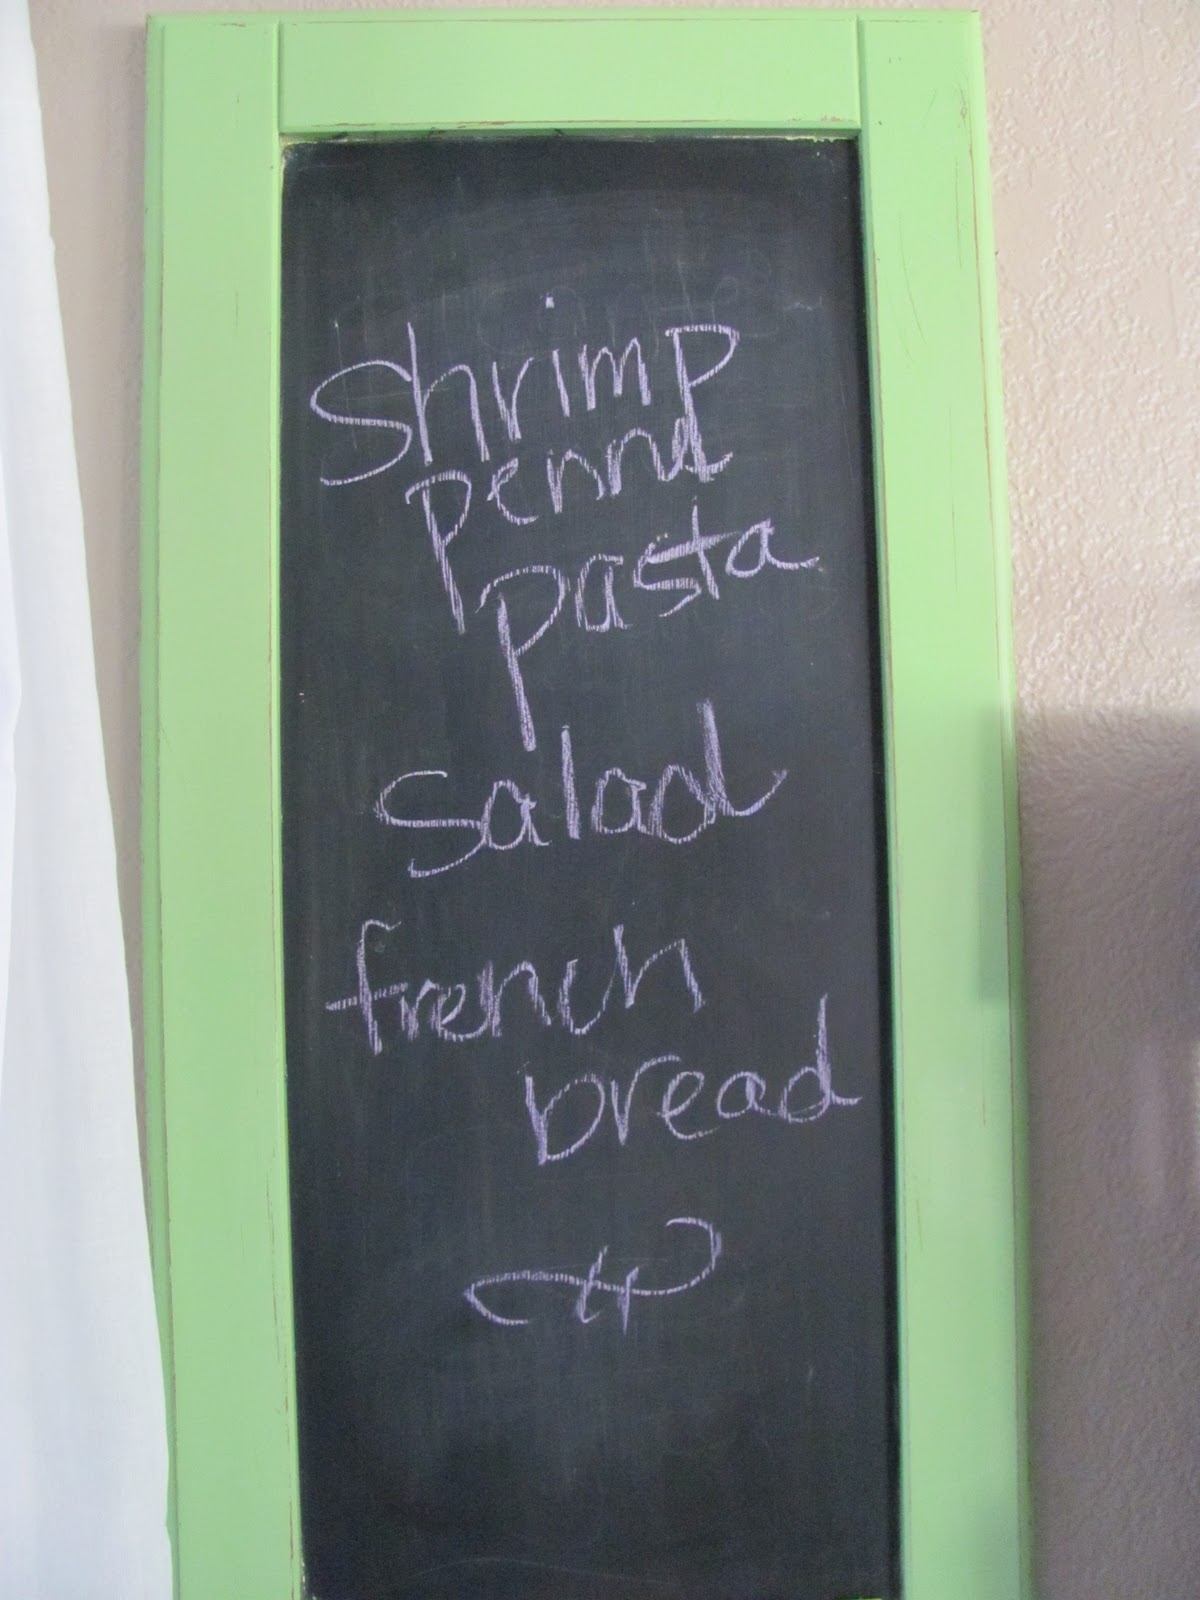 shrimp
penna
pasta
salad
french
bread